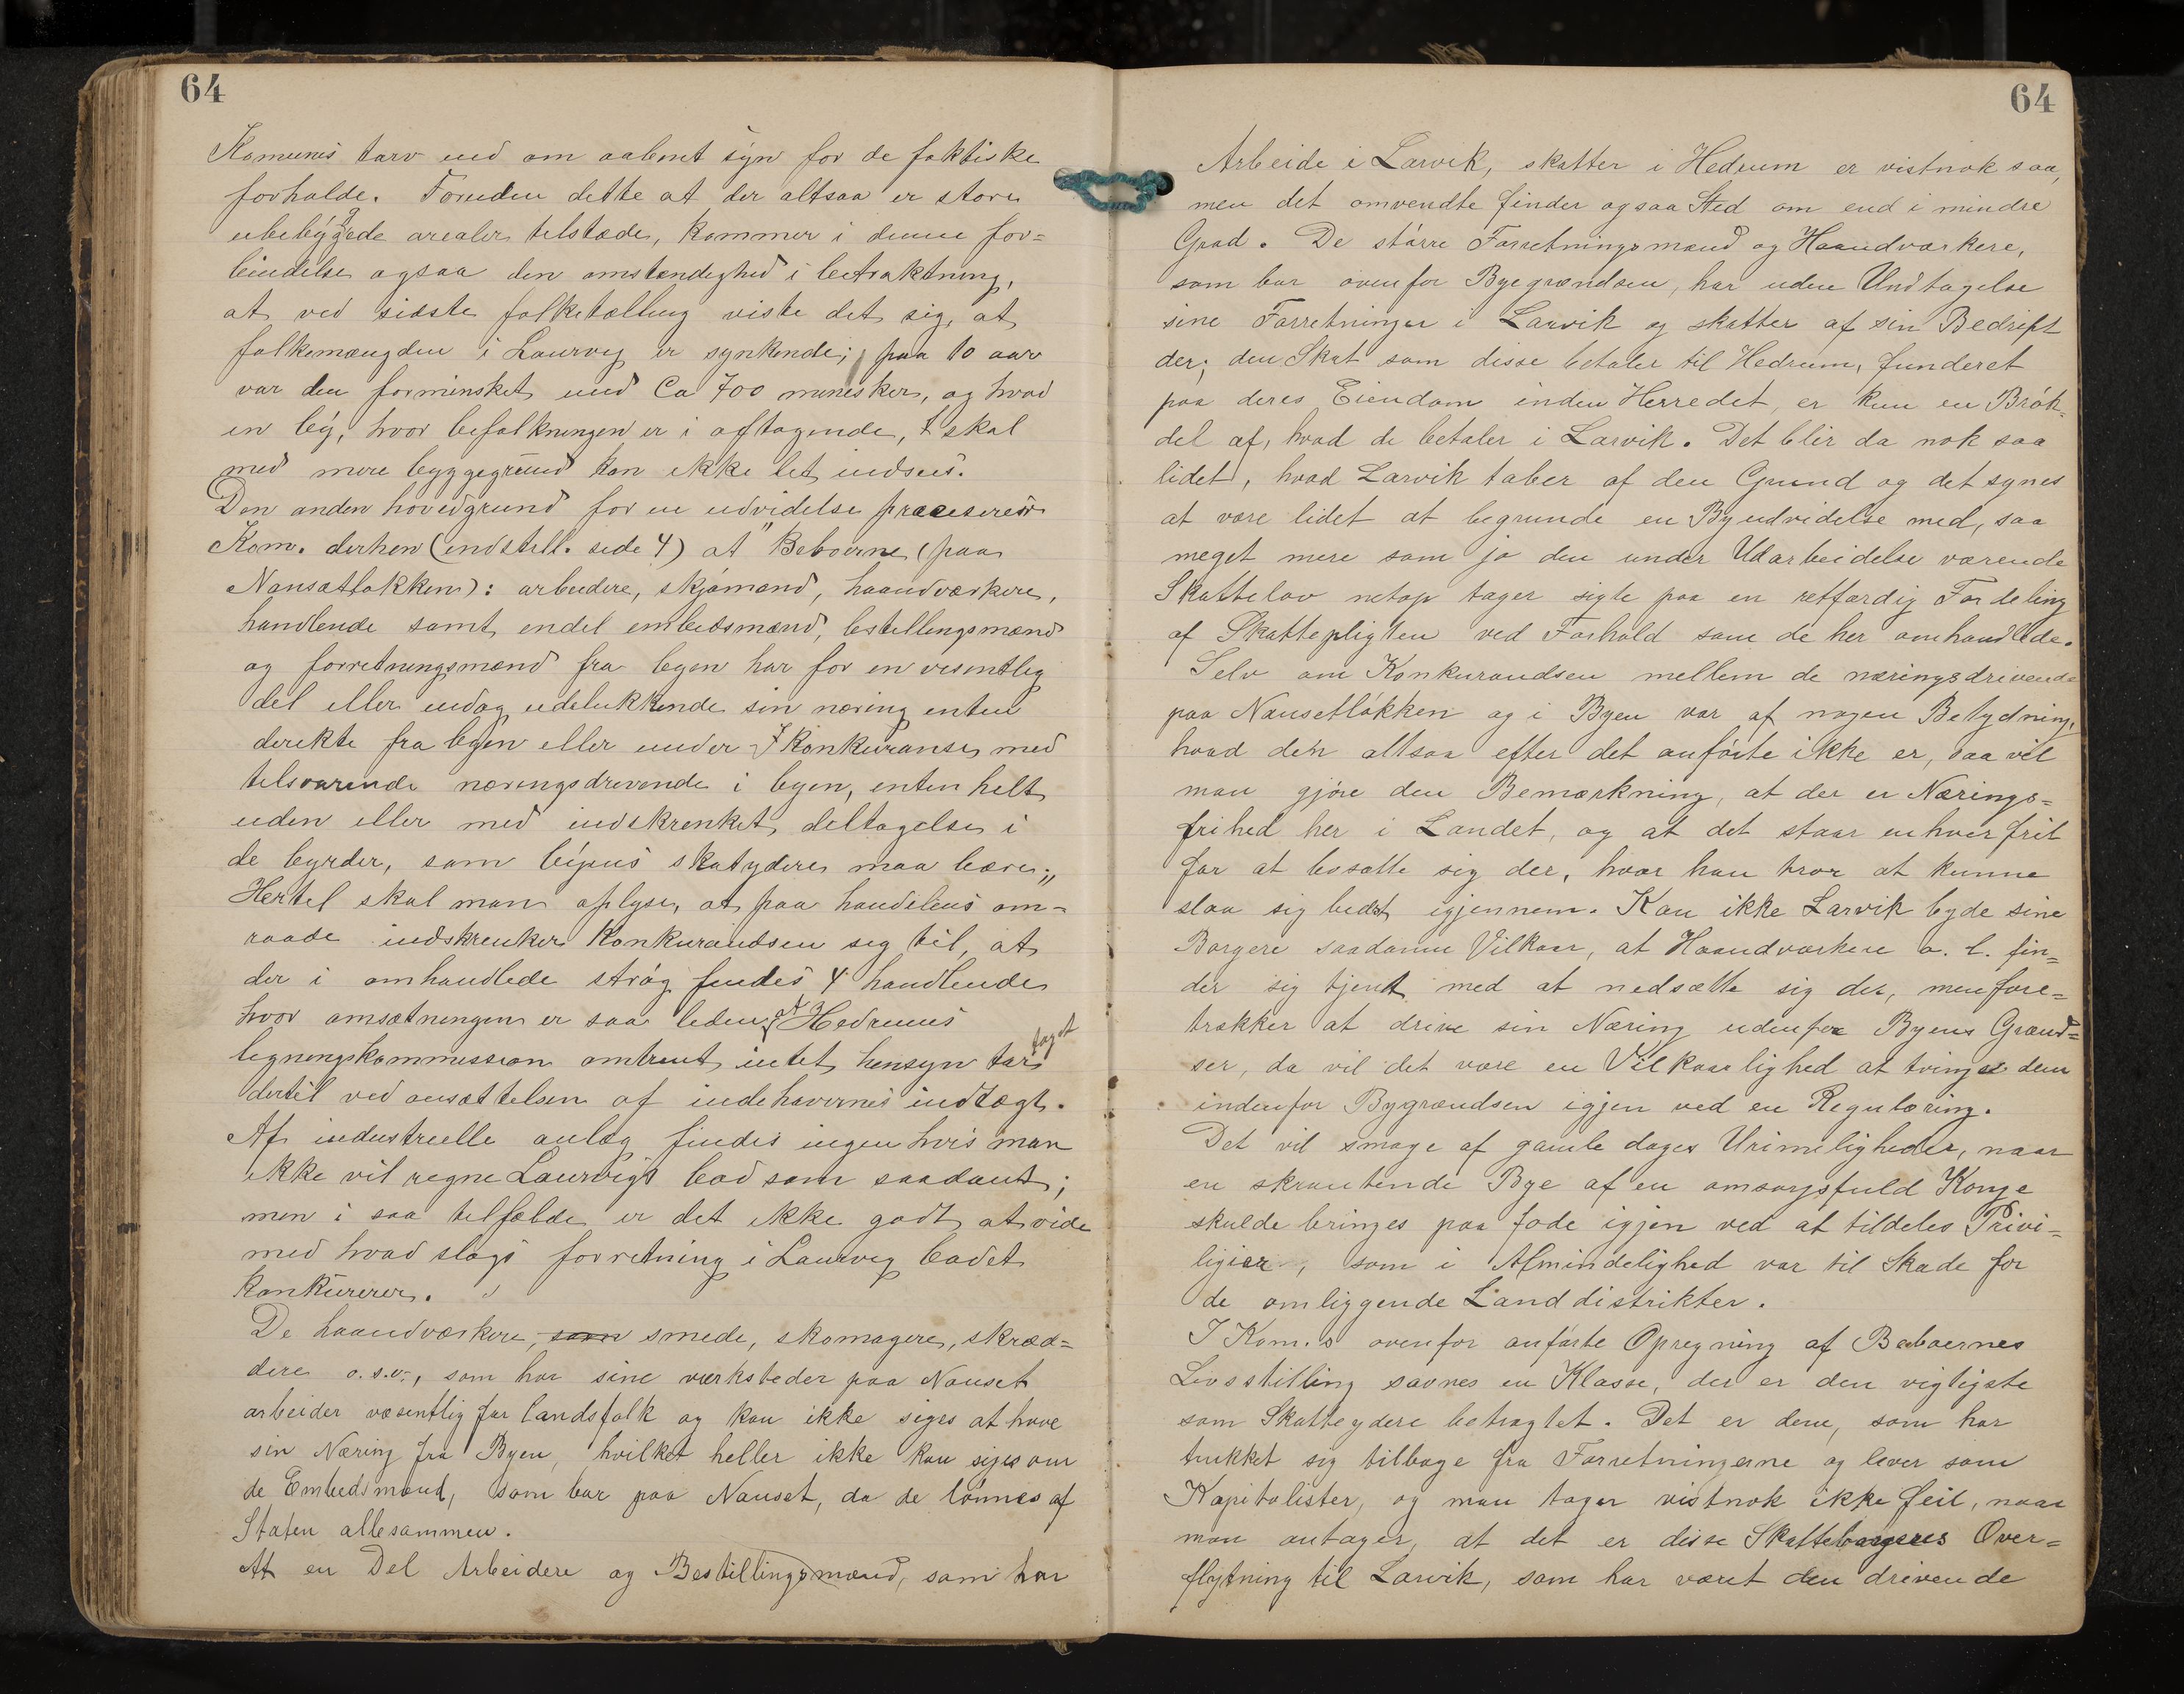 64
Komunens tarv end om aabent syn for de faktiske
forholde. Foruden dette at der altsaa er store
ubebyggede arealer tilstæde, kommer i denne for=
bindelse ogsaa den omstændighed i betraktning,
at ved sidste folketælling viste det sig, at
folkemængden i Laurvig er synkende; paa 10 aar
var den forminsket med Ca 700 mennesker, og hvad
en by, hvor befolkningen er i aftagende, skal
med mere byggegrund kan ikke let indsees.
Den anden hovedgrund for en udvidelse præciserer
Kom. derhen (indstill. side 4) at "Beboerne (paa
Nansætløkken): arbeidere, sjømænd, haandværkere,
handlende samt endel embedsmænd, bestillingsmænd
og forretningsmænd fra byen har for en vesentlig
del eller endog udelukkende sin næring enten
direkte fra byen eller under konkuranse med
tilsvarende næringsdrivende i byen, enten helt
uden eller med indskrenket deltagelse i
de byrder, som byens skatydere maa bære;"
Hertil skal man oplyse, at paa handelens om=
raade indskrenker konkurandsen sig til, at
der i omhandlede strøg findes 4 handlende
hvor omsætningen er saa liden, at Hedrums
ligningskommission omtrent intet hensyn har taget
dertil ved ansættelsen af indehavernes indtægt.
Af industrielle anlæg findes ingen hvis man
ikke vil regne Laurvigs bad som saadant;
men i saa tilfælde er det ikke godt at vide
med hvad slags forretning i Laurvig badet
konkurerer.
De haandværkere, som smede, skomagere, skræd=
dere o.s.v., som har sine værksteder paa Nanset
arbeider væsentlig for landsfolk og kan ikke siges at have
sin Næring fra Byen, hvilket heller ikke kan siges om
de Embedsmænd, som bor paa Nanset, da de lønnes af
Staten allesammen.
At en Del Arbeidere og Bestillingsmænd, som har
64
Arbeide i Larvik, skatter i Hedrum er vistnok saa,
men det omvendte finder ogsaa Sted om end i mindre
Grad. De større Forretningsmænd og Haandværkere,
som bor ovenfor Byegrændsen, har uden Undtagelse
sine Forretninger i Larvik og skatter af sin Bedrift
der; den Skat som disse betaler til Hedrum, funderet
paa deres Eiendom inden Herredet, er kun en Brøk=
del af, hvad de betaler i Larvik. Det blir da nok saa
lidet, hvad Larvik taber af den Grund og det synes
at være lidet at begrunde en Byudvidelse med, saa
meget mere som jo den under Udarbeidelse værende
Skattelov netop tager sigte paa en retfærdig Fordeling
af Skattepligten ved Forhold som de her omhandlede.
Selv om Konkurandsen mellem de næringsdrivende
paa Nansetløkken og i Byen var af nogen Betydning,
hvad den altsaa efter det anførte ikke er, saa vil
man gjøre den Bemærkning, at der er Nærings=
frihed her i Landet, og at det staar enhver frit
for at besætte sig der, hvor han tror at kunne
slaa sig bedst igjennem. Kan ikke Larvik byde sine
Borgere saadanne Vilkaar, at Haandværkere o. l. fin=
der sig tjent med at nedsætte sig der, men fore=
trækker at drive sin Næring udenfor Byens Grænd=
ser, da vil det være en Vilkaarlighed at tvinge dem
indenfor Bygrændsen igjen ved en Regulæring.
Det vil smage af gamle dages Urimeligheder, naar
en skrantende Bye af en omsorgsfuld Konge
skulde bringes paa fode igjen ved at tildeles Privi=
ligier, som i Almindelighed var til Skade for
de omliggende Landdistrikter.
I Kom.s ovenfor anførte Opregning af Beboernes
Livsstilling savnes en Klasse, der er den vigtigste
som Skatteydere betragtet. Det er dem, som har
trukket sig tilbage fra Forretningerne og lever som
Kapitalister, og man tager vistnok ikke feil, naar
man antager, at det er disse Skatteborgeres Over=
flytning til Larvik, som har været den drivende